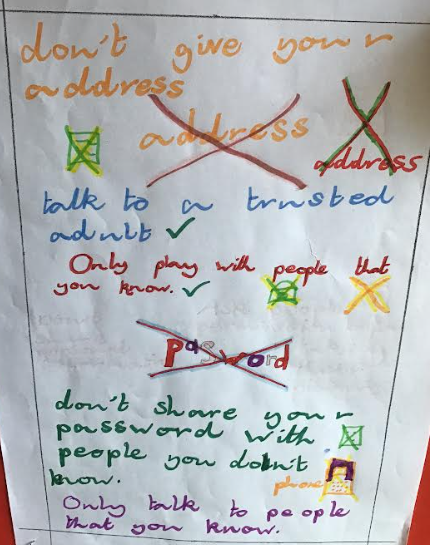 don't give your
address
address
address
talk to a trusted
adult
Only play with people that
you know.
Password
don't share your
password with
people you don't
know.
phone
Only talk to people
that you know.